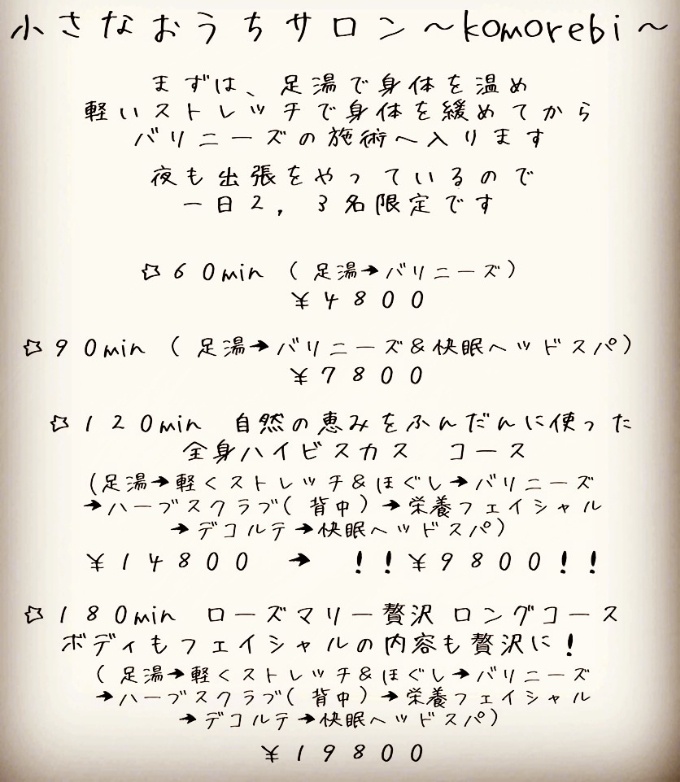 小さなおうちサロン～komorebi～
まずは、足湯で身体を温め
軽いストレッチで身体を緩めてから
バリニーズの施術へ入ります
夜も出張をやっているので
一日2，3名限定です
60min（足湯→バリニーズ）
¥4800
90min（足湯→バリニーズ&快眠ヘッドスパ）
¥7800
120min 自然の恵みをふんだんに使った
全身ハイビスカス コース
(足湯→軽くストレッチ&ほぐし→バリニーズ
→ハーブスクラブ(背中)→栄養フェイシャル
→デコルテ→快眠ヘッドスパ)
¥14800 → !!¥9800!!
180min ローズマリー贅沢 ロングコース
ボディもフェイシャルの内容も贅沢に!
(足湯→軽くストレッチ&ほぐし→バリニーズ
→ハーブスクラブ(背中)→栄養フェイシャル
→デコルテ→快眠ヘッドスパ)
¥19800